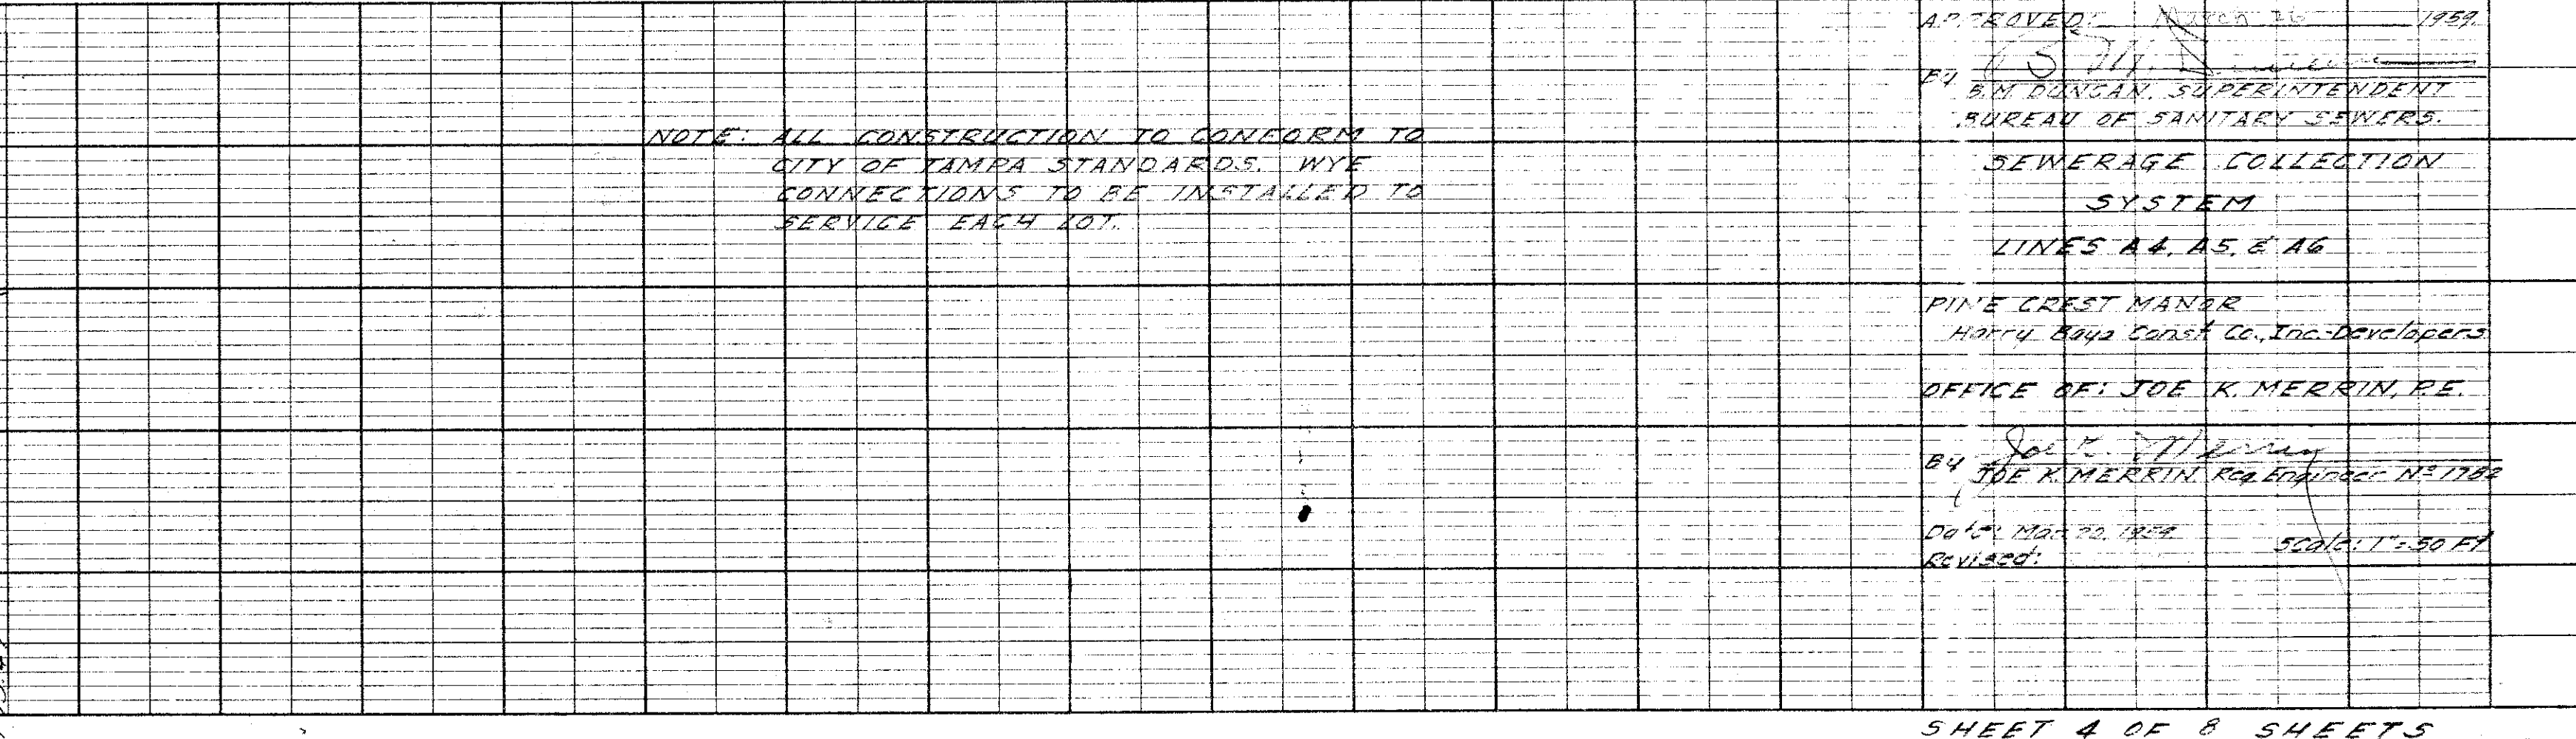 NOTE: ALL CONSTRUCTION TO CONFORM TO
CITY OF TAMPA STANDARDS. WYE
CONNECTIONS TO BE INSTALLED TO
SERVICE EACH LOT.
APPROVED: March 26 1959.
By
B.M. DUNCAN, SUPERINTENDENT
BUREAU OF SANITARY SEWERS.
SEWERAGE COLLECTION
SYSTEM
LINES A4, A5, & A6
PINE CREST MANOR
Harry Boya Const Co., Inc. Developers
OFFICE OF: JOE K. MERRIN, P.E.
By Joe K. Merrin
JOE K. MERRIN Reg Engineer Nº 1782
Date: Mar 1959
Scale: 1"=50 Ft
Revised:
SHEET 4 OF 8 SHEETS